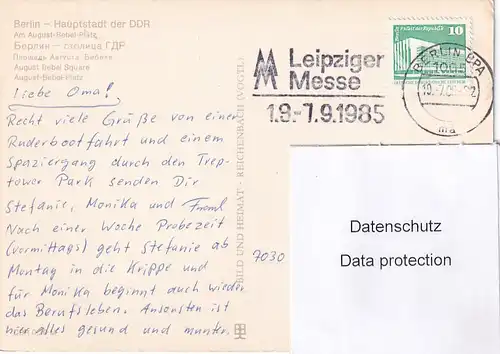 Berlin – Hauptstadt der DDR
Am August-Bebel-Platz
Берлин — столица ГДР
Площадь Августа Бебеля
August Bebel Square
August-Bebel-Platz
Liebe Oma!
Recht viele Grüße von einer
Ruderbootfahrt und einem
Spaziergang durch den Trep-
tower Park senden Dir
Stefanie, Monika und
Nach einer Woche Probezeit
(vormittags) geht Stefanie ab
Montag in die Krippe und
für Monika beginnt auch wieder
das Berufsleben. Ansonsten ist
hier alles gesund und munter.
BILD UND HEIMAT · REICHENBACH (VOGTL)
7030
Leipziger
Messe
1.9.-7.9.1985
10
BERLIN BPA
1085
Datenschutz
Data protection